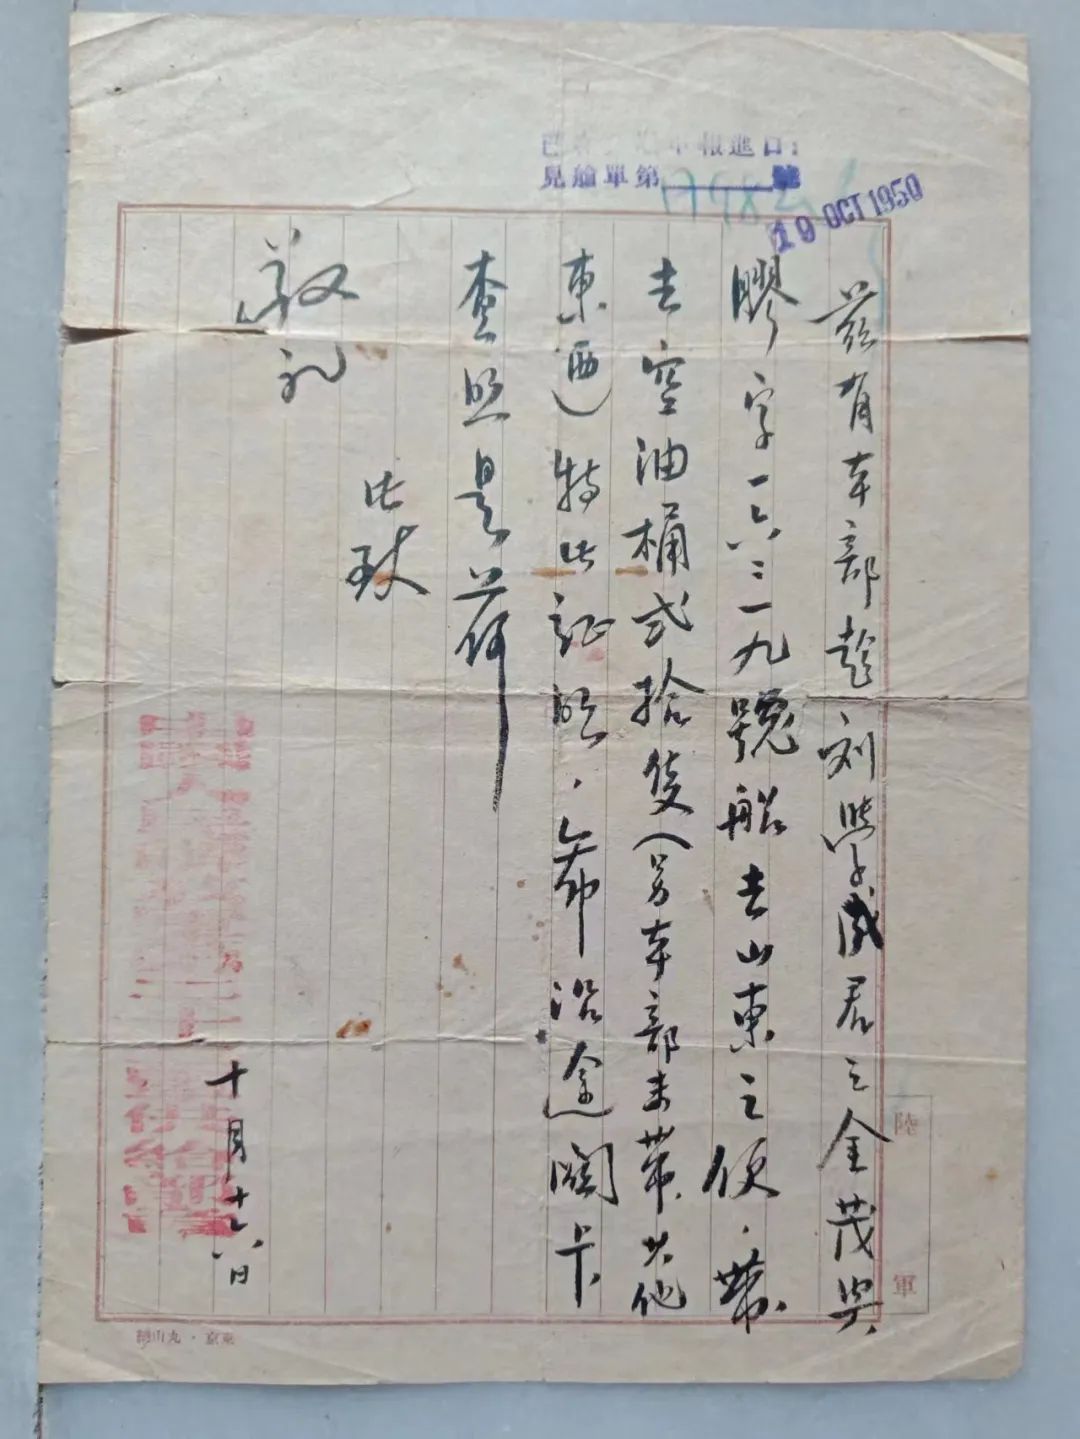 報進口
見艙單第 號
19 OCT 1950
茲有本部趁刘學成君之金茂興
膠字一六三一九號船去山東之便·帶
去空油桶弍拾隻(另本部未帶其他
東西)特此証明·希沿途關卡
查照是荷
此致
敬礼
十月十八日
陸軍
東京·丸山